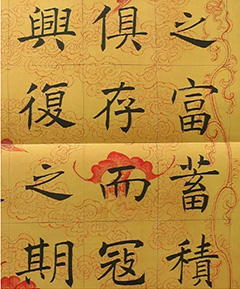 之富蓄積
俱存而寇
興復之期